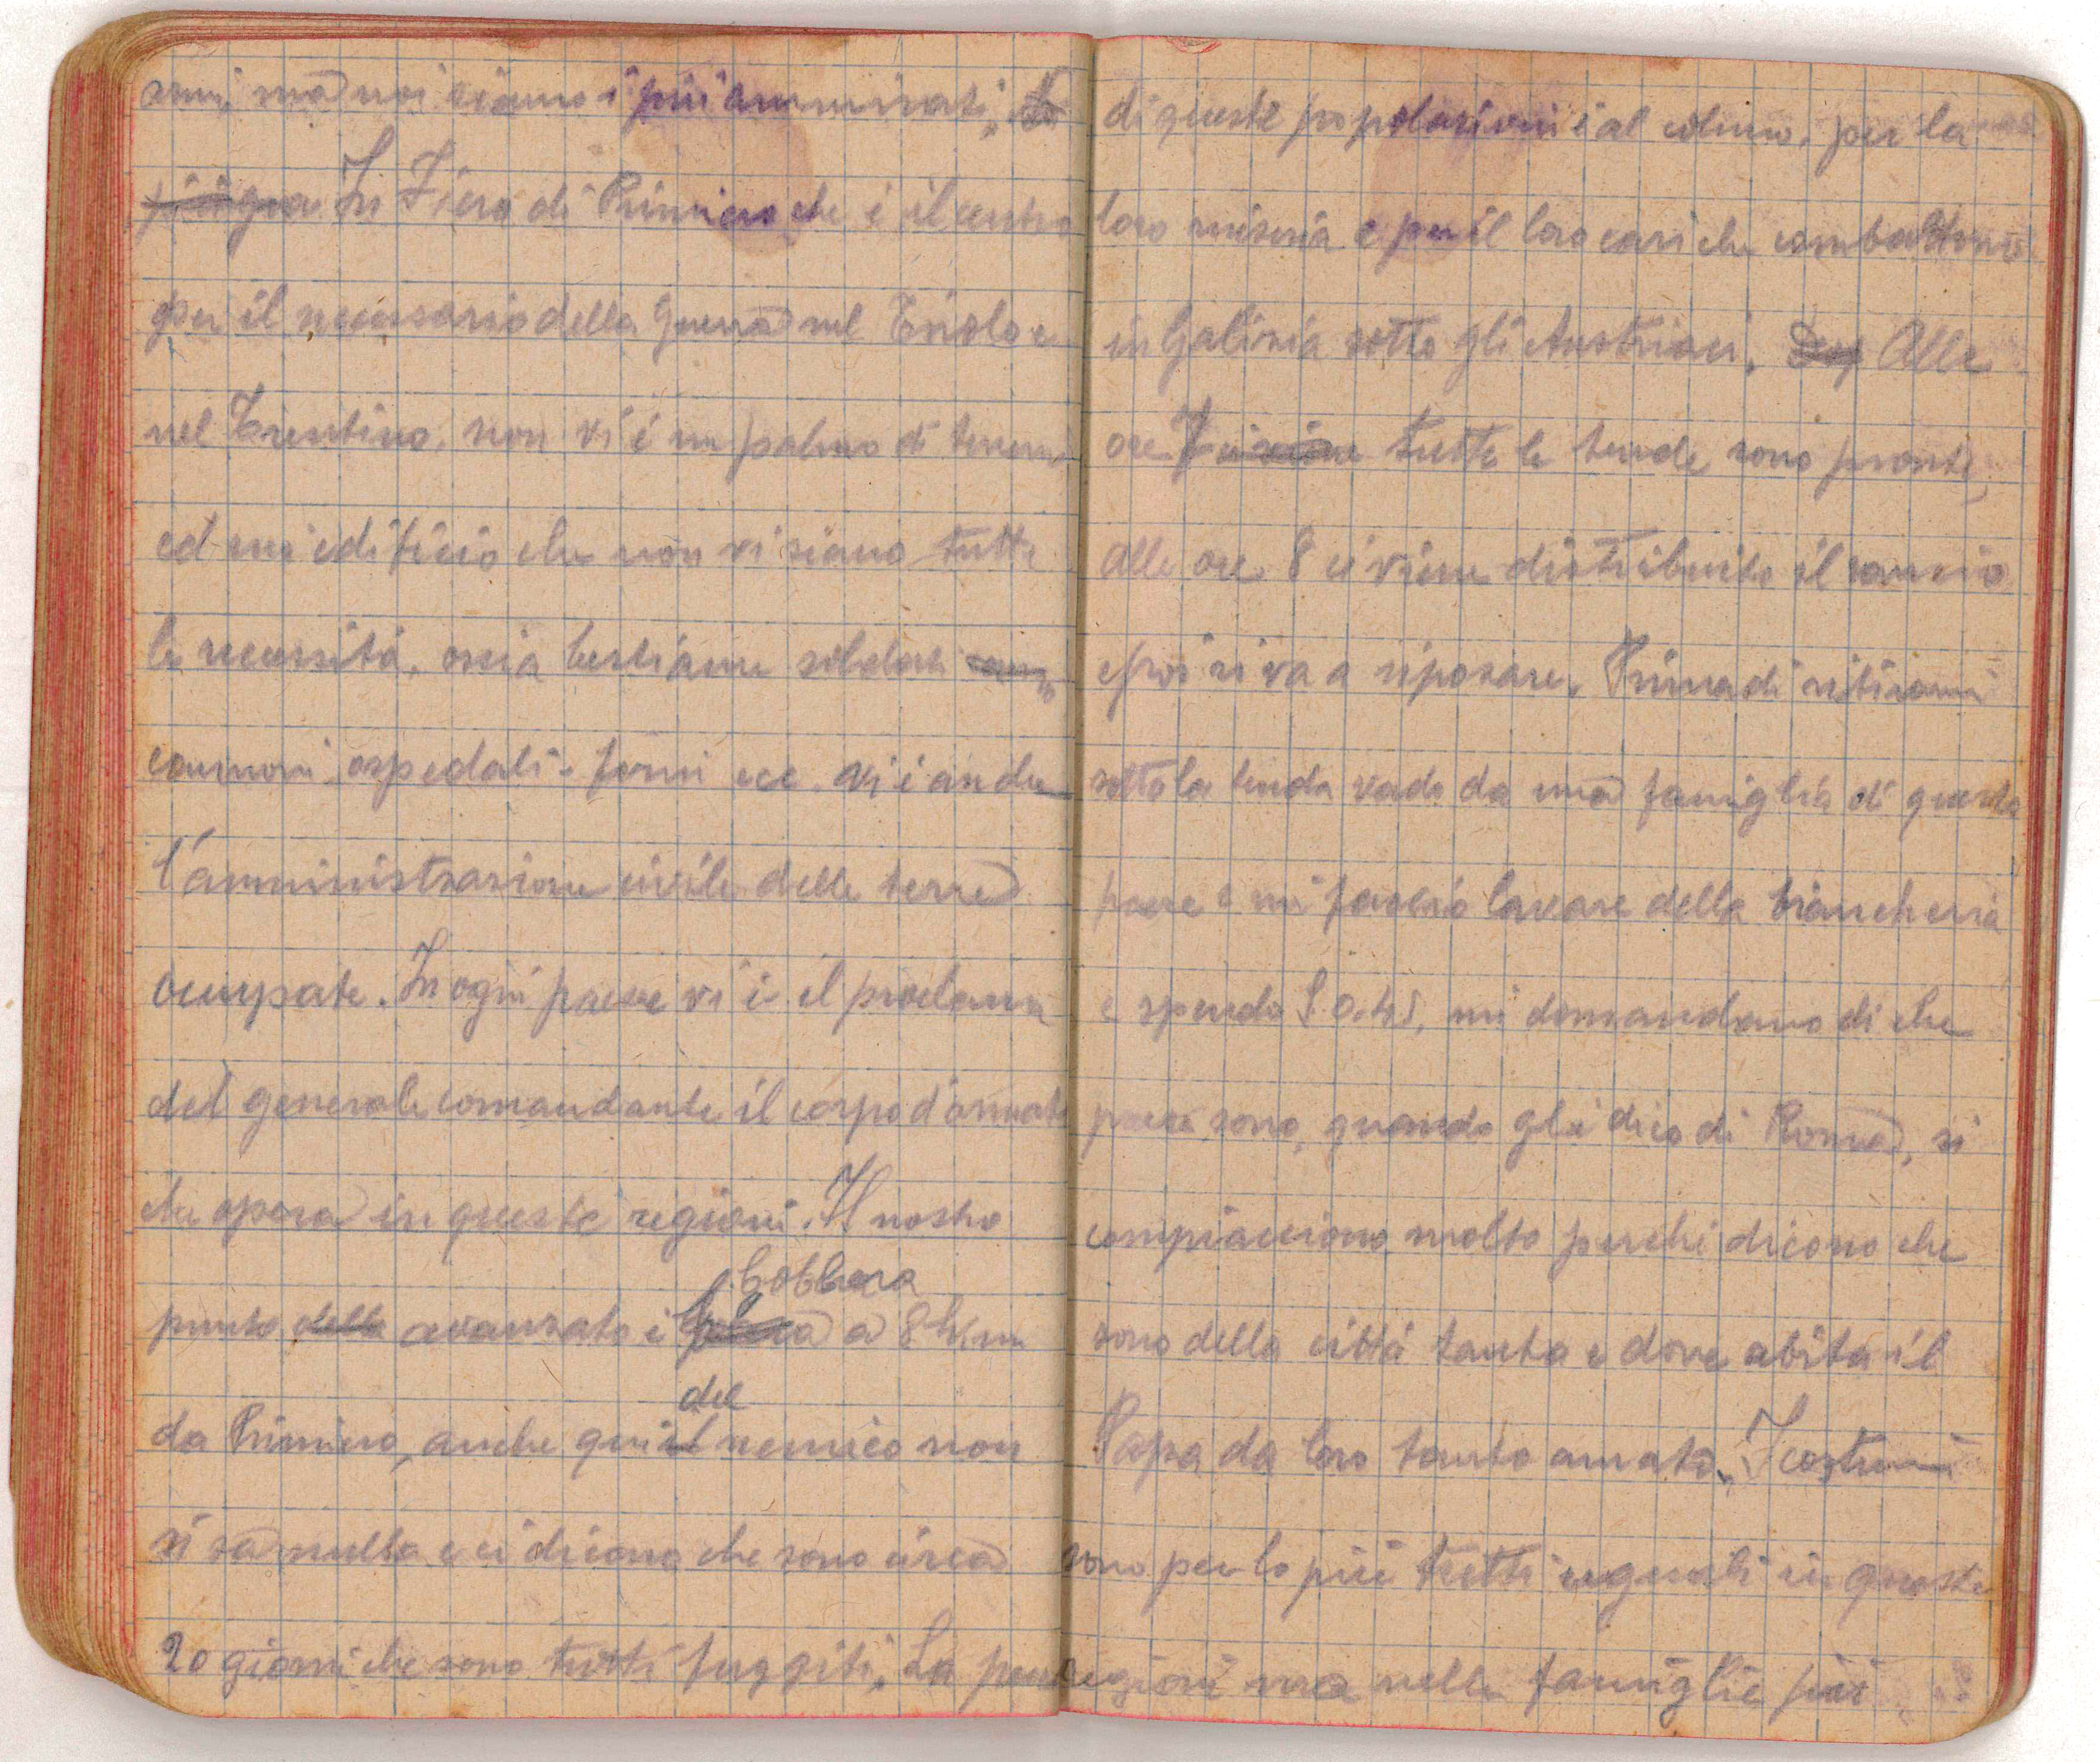 armi, ma noi siamo i più ammirati,
In Fiera di Primiero che è il centro
per il necessario della Guerra nel Tirolo e
nel Trentino, non vi è un palmo di terreno
ed un edificio che non vi siano tutte
le necessità, ossia bestiame soldati
cannoni ospedali - forni ecc. vi è anche
l'amministrazione civile delle terre
occupate. In ogni paese vi è il proclama
del generale comandante il corpo d'armata
che opera in queste regioni. Il nostro
gobbera
punto della avanzato è a 8 Km
del
da Primiero, anche qui il nemico non
si sa nulla e ci dicono che sono circa
20 giorni che sono tutti fuggiti. La
di queste popolazioni è al colmo, per la
loro miseria e per il loro cari che combattono
in Galizia sotto gli Austriaci. Alle
ore 7 tutte le tende sono pronte,
alle ore 8 ci viene distribuito il rancio
e poi si va a riposare. Prima di ritirarmi
sotto la tenda vado da una famiglia di questo
paese e mi faccio lavare della biancheria
e spendo £ 0.45, mi domandano di che
paese sono, quando gli dico di Roma, si
compiacciono molto perchè dicono che
sono della città santa e dove abita il
Papa da loro tanto amato. I costumi
sono per lo più tutti uguali in queste
regioni ma nelle famiglie più